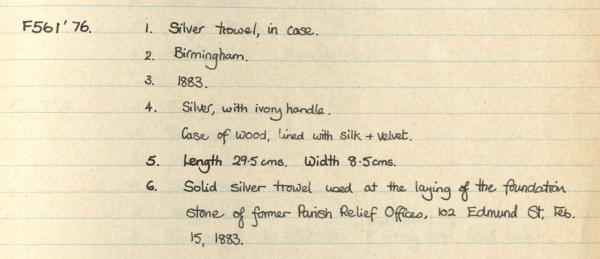 F561'76. 1. Silver trowel, in case.
2. Birmingham.
3. 1883.
4. Silver, with ivory handle.
Case of wood, lined with silk + velvet.
5. Length 29.5cms. Width 8.5cms.
6. Solid silver trowel used at the laying of the foundation
stone of former Parish Relief Offices, 102 Edmund St, Feb.
15, 1883.